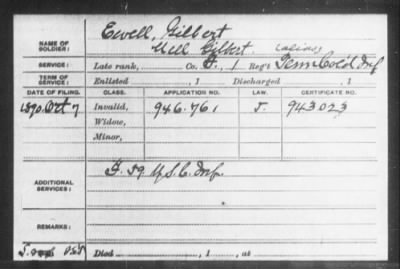 Ewell, Gilbert
NAME OF SOLDIER: Uell Gilbert. (alias)
SERVICE: Late rank, Co. F, 1 Reg't Tenn Col'd Inf
TERM OF SERVICE: Enlisted , 1 Discharged , 1
DATE OF FILING. CLASS. APPLICATION NO. LAW. CERTIFICATE NO.
1890. Oct 7 Invalid, 946.761 J. 943023
Widow,
Minor,
ADDITIONAL SERVICES: F. 59 U.S.C. Inf.
REMARKS:
Died , 1 , at